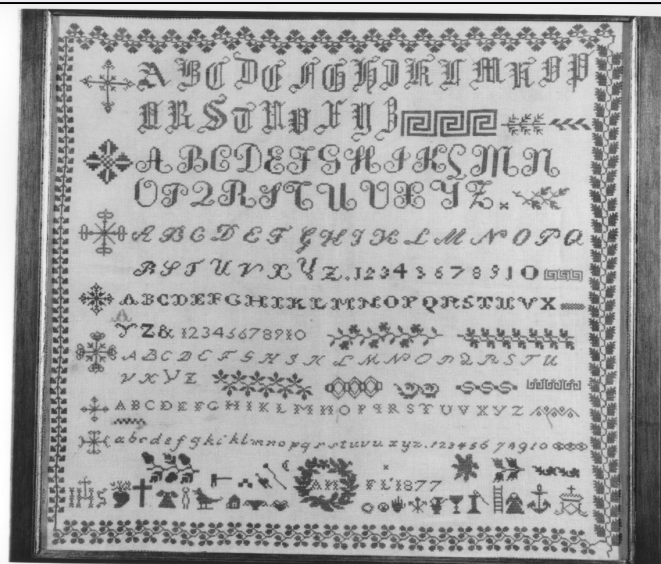 A B C D E F G H I K L M N O P
Q R S T U V X Y Z
A B C D E F G H I K L M N
O P Q R S T U V X Y Z.
A B C D E F G H I K L M N O P Q
R S T U V X Y Z. 1 2 3 4 5 6 7 8 9 1 0
A B C D E F G H I K L M N O P Q R S T U V X
A
Y Z & 1 2 3 4 5 6 7 8 9 1 0
A B C D E F G H I K L M N O P Q R S T U
V X Y Z
A B C D E F G H I K L M N O P Q R S T U V X Y Z
a b c d e f g h i k l m n o p q r s t u v u x y z. 1 2 3 4 5 6 7 8 9 1 0
IHS AH FL'1877